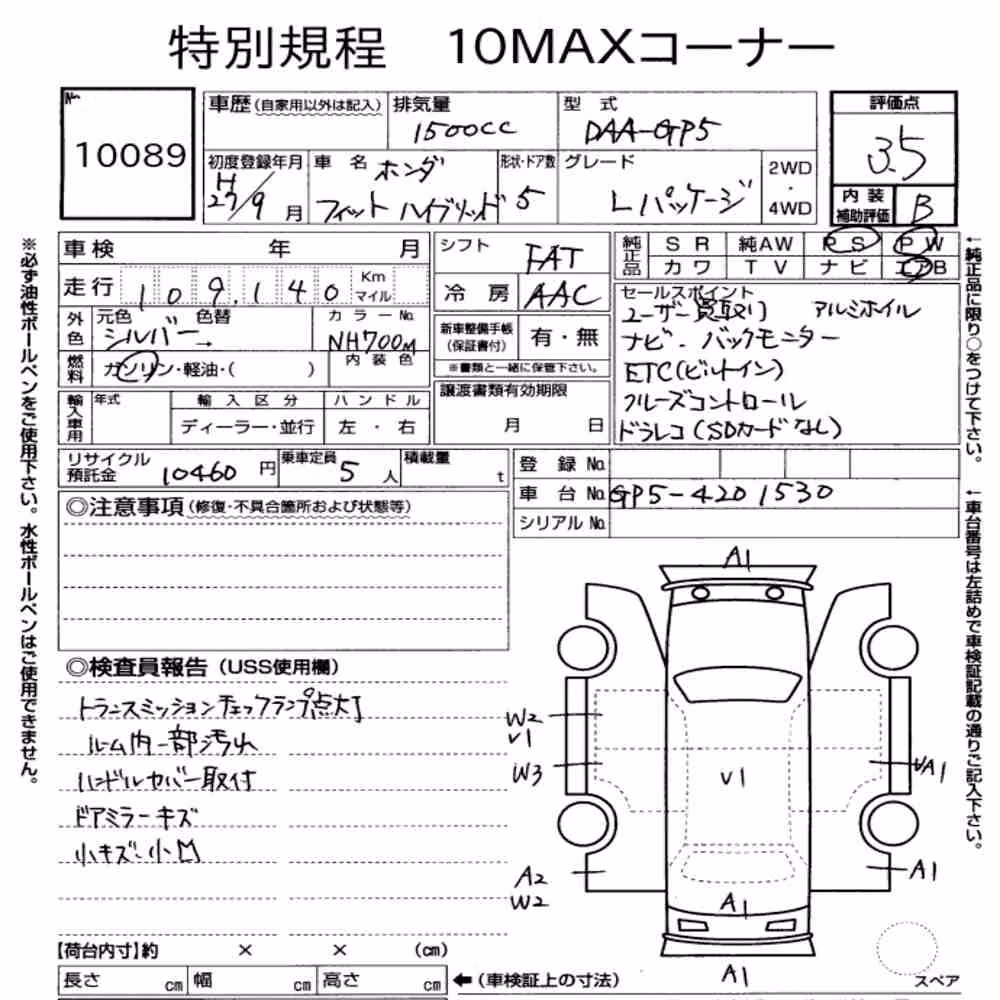 特別規程 10MAXコーナー
No.
10089
車歴(自家用以外は記入)
排気量
1500cc
型式
DAA-GP5
評価点
3.5
初度登録年月
H
27/9月
車名
ホンダ
フィット ハイブリッド
形状・ドア数
5
グレード
Lパッケージ
2WD
・
4WD
内装
補助評価
B
※必ず油性ボールペンをご使用下さい。水性ボールペンはご使用できません。
車検 年 月
走行 109,140 Km マイル
外色
元色 色替
シルバー→
カラーNo.
NH700M
燃料
ガソリン・軽油・( )
内装色
輸入車用
年式
輸入区分
ディーラー・並行
ハンドル
左・右
シフト
FAT
冷房
AAC
新車整備手帳
(保証書付)
有・無
※書類と一緒に保管下さい。
譲渡書類有効期限
月 日
純正品
SR 純AW PS PW
カワ TV ナビ エアB
セールスポイント
ユーザー買取り アルミホイル
ナビ・バックモニター
ETC(ビルトイン)
クルーズコントロール
ドラレコ(SDカードなし)
←純正品に限り○をつけて下さい。
リサイクル
預託金
10460円
乗車定員
5人
積載量
t
登録No.
車台No. GP5-4201530
シリアルNo.
←車台番号は左詰めで車検証記載の通りご記入下さい。
◎注意事項(修復・不具合箇所および状態等)
◎検査員報告(USS使用欄)
トランスミッションチェックランプ点灯
ルーム内一部汚れ
ハンドルカバー取付
ドアミラーキズ
小キズ・小凹
A1
W2
V1
W3
V1
VA1
A2
W2
A1
A1
A1
スペア
【荷台内寸】約 × × (cm)
長さ cm 幅 cm 高さ cm
←(車検証上の寸法)